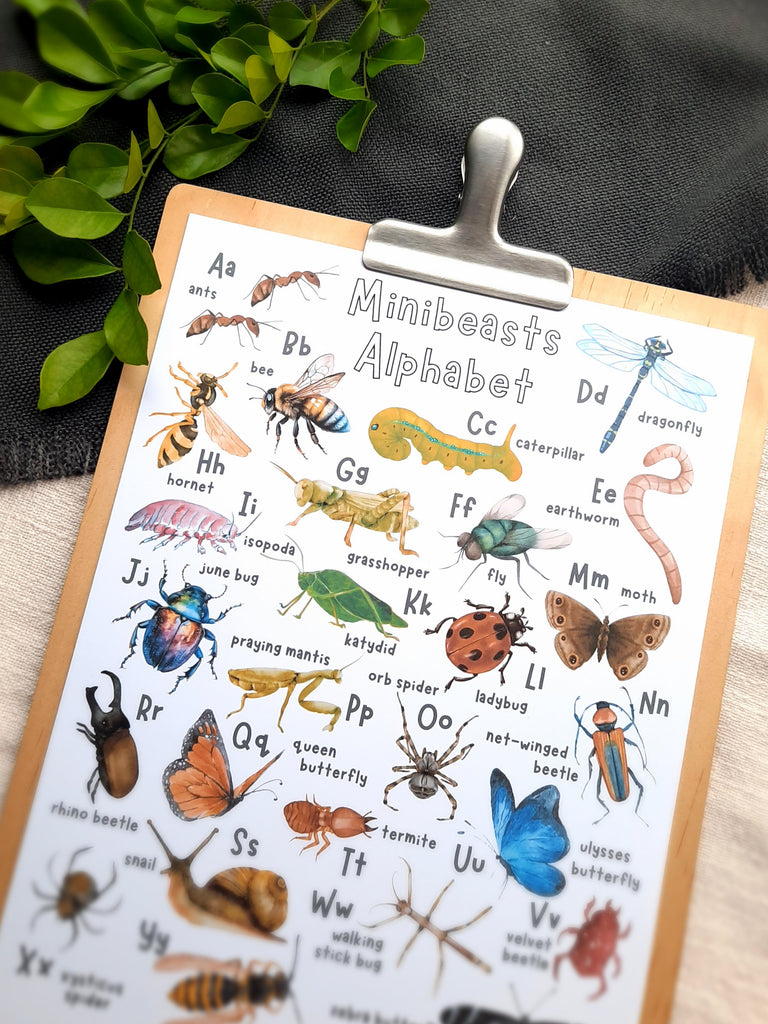 Minibeasts
Alphabet
Aa
ants
Bb
bee
Cc
caterpillar
Dd
dragonfly
Ee
earthworm
Ff
fly
Gg
grasshopper
Hh
hornet
Ii
isopoda
Jj
june bug
Kk
katydid
Ll
ladybug
Mm
moth
Nn
net-winged
beetle
Oo
orb spider
Pp
praying mantis
Qq
queen
butterfly
Rr
rhino beetle
Ss
snail
Tt
termite
Uu
ulysses
butterfly
Vv
velvet
beetle
Ww
walking
stick bug
Xx
spider
Yy